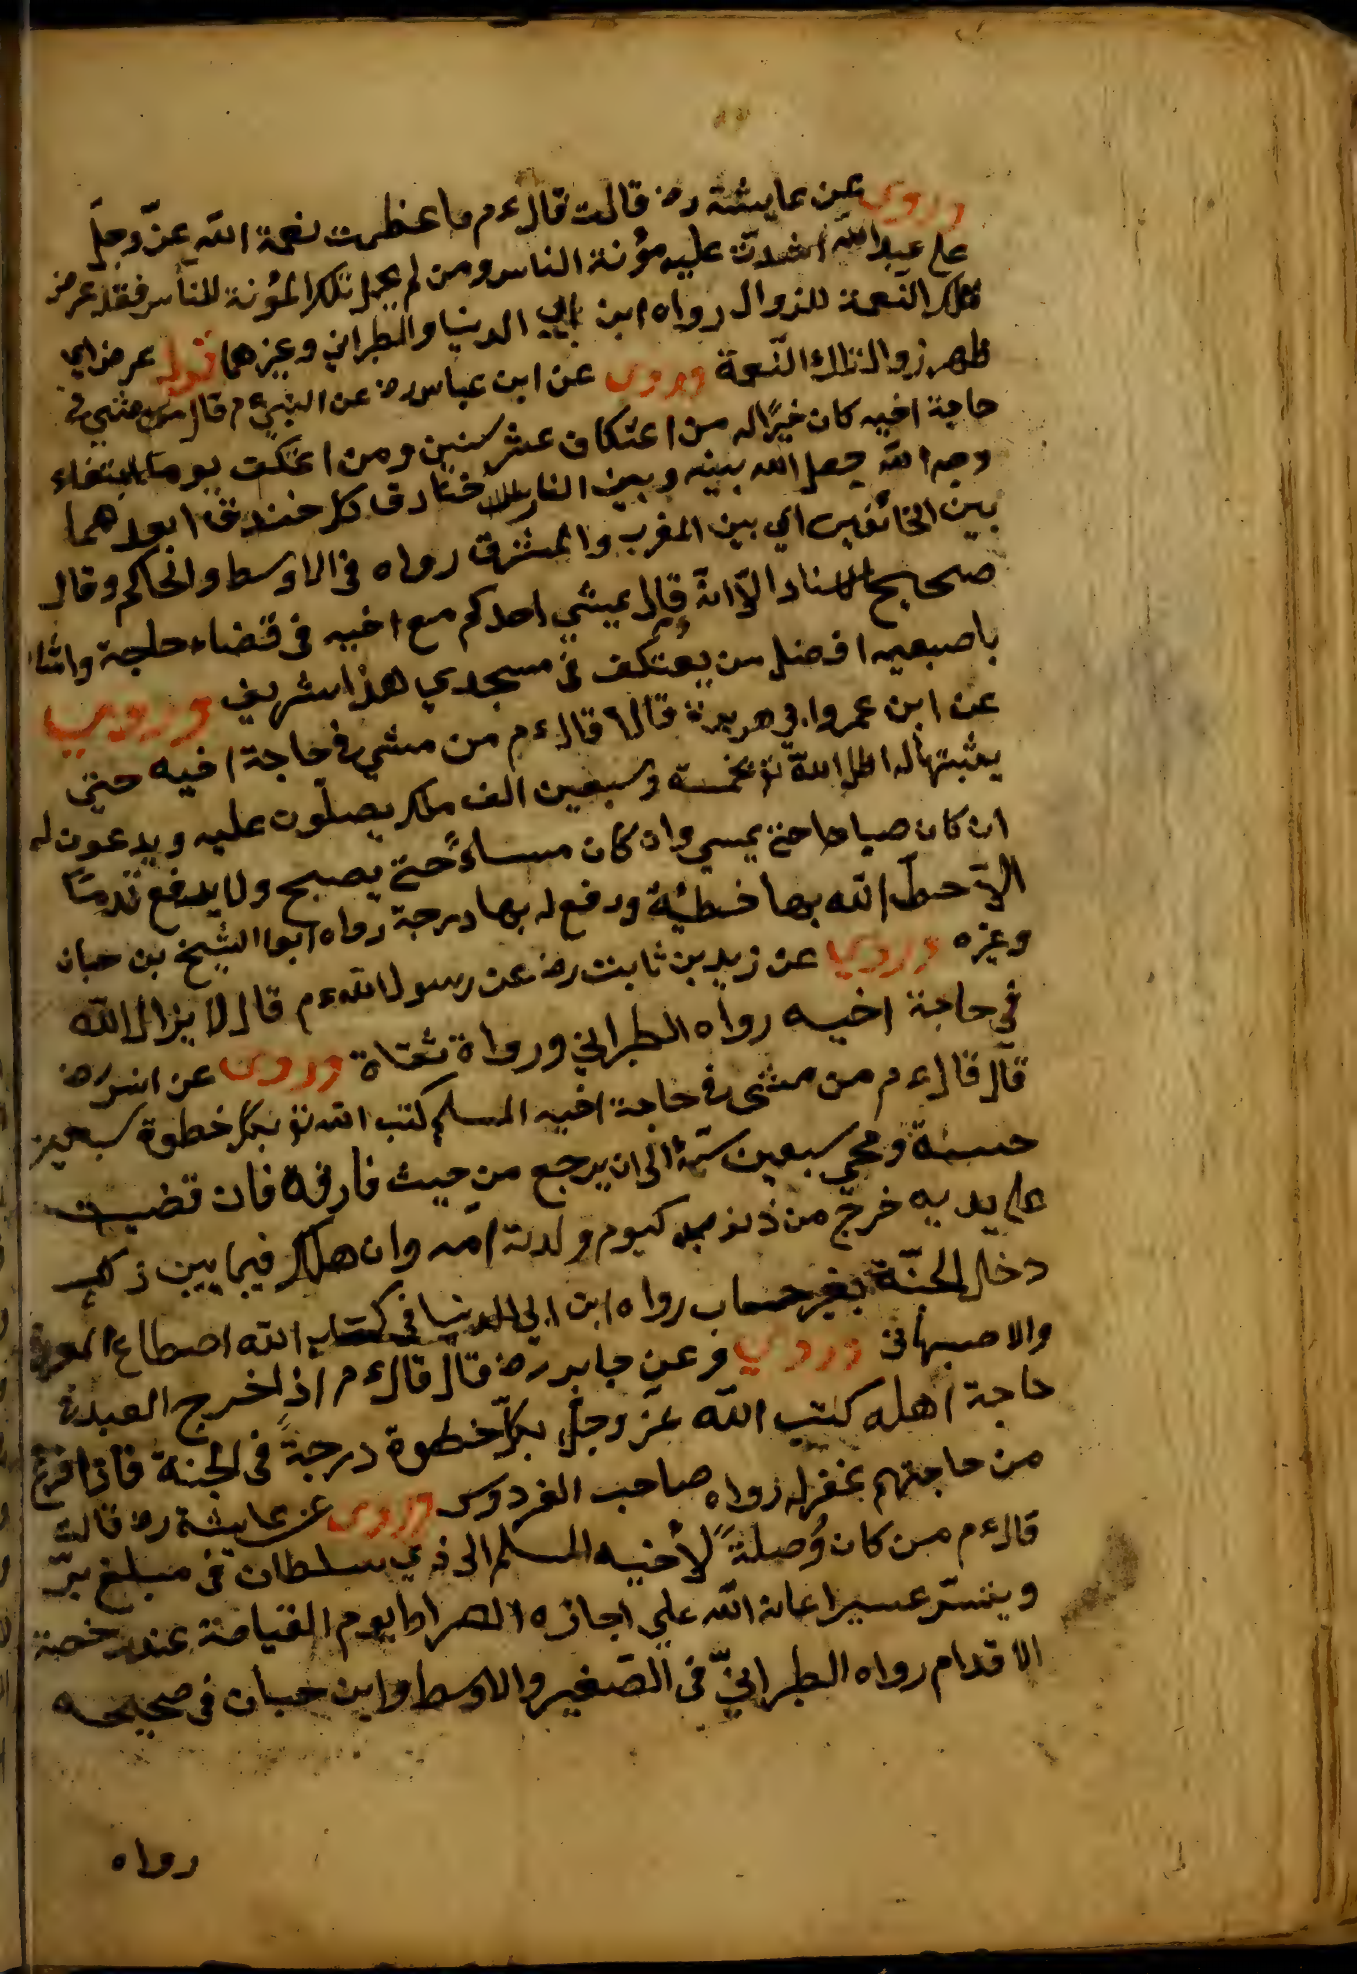 وروى عن عايشة رض قالت قال ءم ما عظمت نعمة الله عزّ وجلّ
على عبد الله اشتدت عليه مؤنة الناس ومن لم يحمل تلك المؤنة للناس فقد عرض
تلك النعمة للزوال رواه ابن ابي الدنيا والطبراني وغيرهما قوله عرض اي
ظهر زوال تلك النّعمة وروى عن ابن عباس رض عن النبي ءم قال من مشي في
حاجة اخيه كان خيرًا له من اعتكاف عشر سنين ومن اعتكف يوما ابتغاء
وجه الله جعل الله بينه وبين النار ثلث خنادق كل خندق ابعد هما
بين الخائفين اي بين المغرب والمشرق رواه في الاوسط والحاكم وقال
صحيح الاسناد الّا انّه قال يمشي احدكم مع اخيه في قضاء حاجة واشا
باصبعيه افضل من يعتكف في مسجدي هذا شهرين وروي
عن ابن عمر وابي هريرة قالا قال ءم من مشي في حاجة اخيه حتى
يثبتها له اظل الله تع بخمسة وسبعين الف ملك يصلّون عليه ويدعون له
ان كان صباحا حتى يمسي وان كان مساءً حتى يصبح ولا يرفع قدمًا
الّا حطّ الله بها خطيئة ورفع له بها درجة رواه ابوا الشيخ بن حبان
وغيره وروي عن زيد بن ثابت رض عن رسول الله ءم قال لا يزال الله
في حاجة اخيه رواه الطبراني ورواة ثقاة وروى عن انس رض
قال قال ءم من مشى في حاجة اخيه المسلم كتب الله تع بكل خطوة سبعين
حسنة ومحي سبعين سيّئة الى ان يرجع من حيث فارقه فان قضيت
على يديه خرج من ذنوبه كيوم ولدته امه وان هلك فيما بين ذلك
دخل الجنّة بغير حساب رواه ابن ابي الدنيا في كتاب الله اصطناع المعروف
والاصبهاني وروي وعن جابر رض قال قال ءم اذا خرج العبد في
حاجة اهله كتب الله عزّ وجلّ بكلّ خطوة درجةً في الجنة فاذا فرغ
من حاجتهم غفر له رواه صاحب الفردوس وروى عن عايشة رض قالت
قال ءم من كان وُصلةً لأخيه المسلم الى ذي سلطان في مبلغ برّ
ويتسرّ عسير اعانه الله على اجازه الصراط يوم القيامة عند دحضة
الاقدام رواه الطبرانيّ في الصّغير والاوسط وابن حبان في صحيحه
رواه